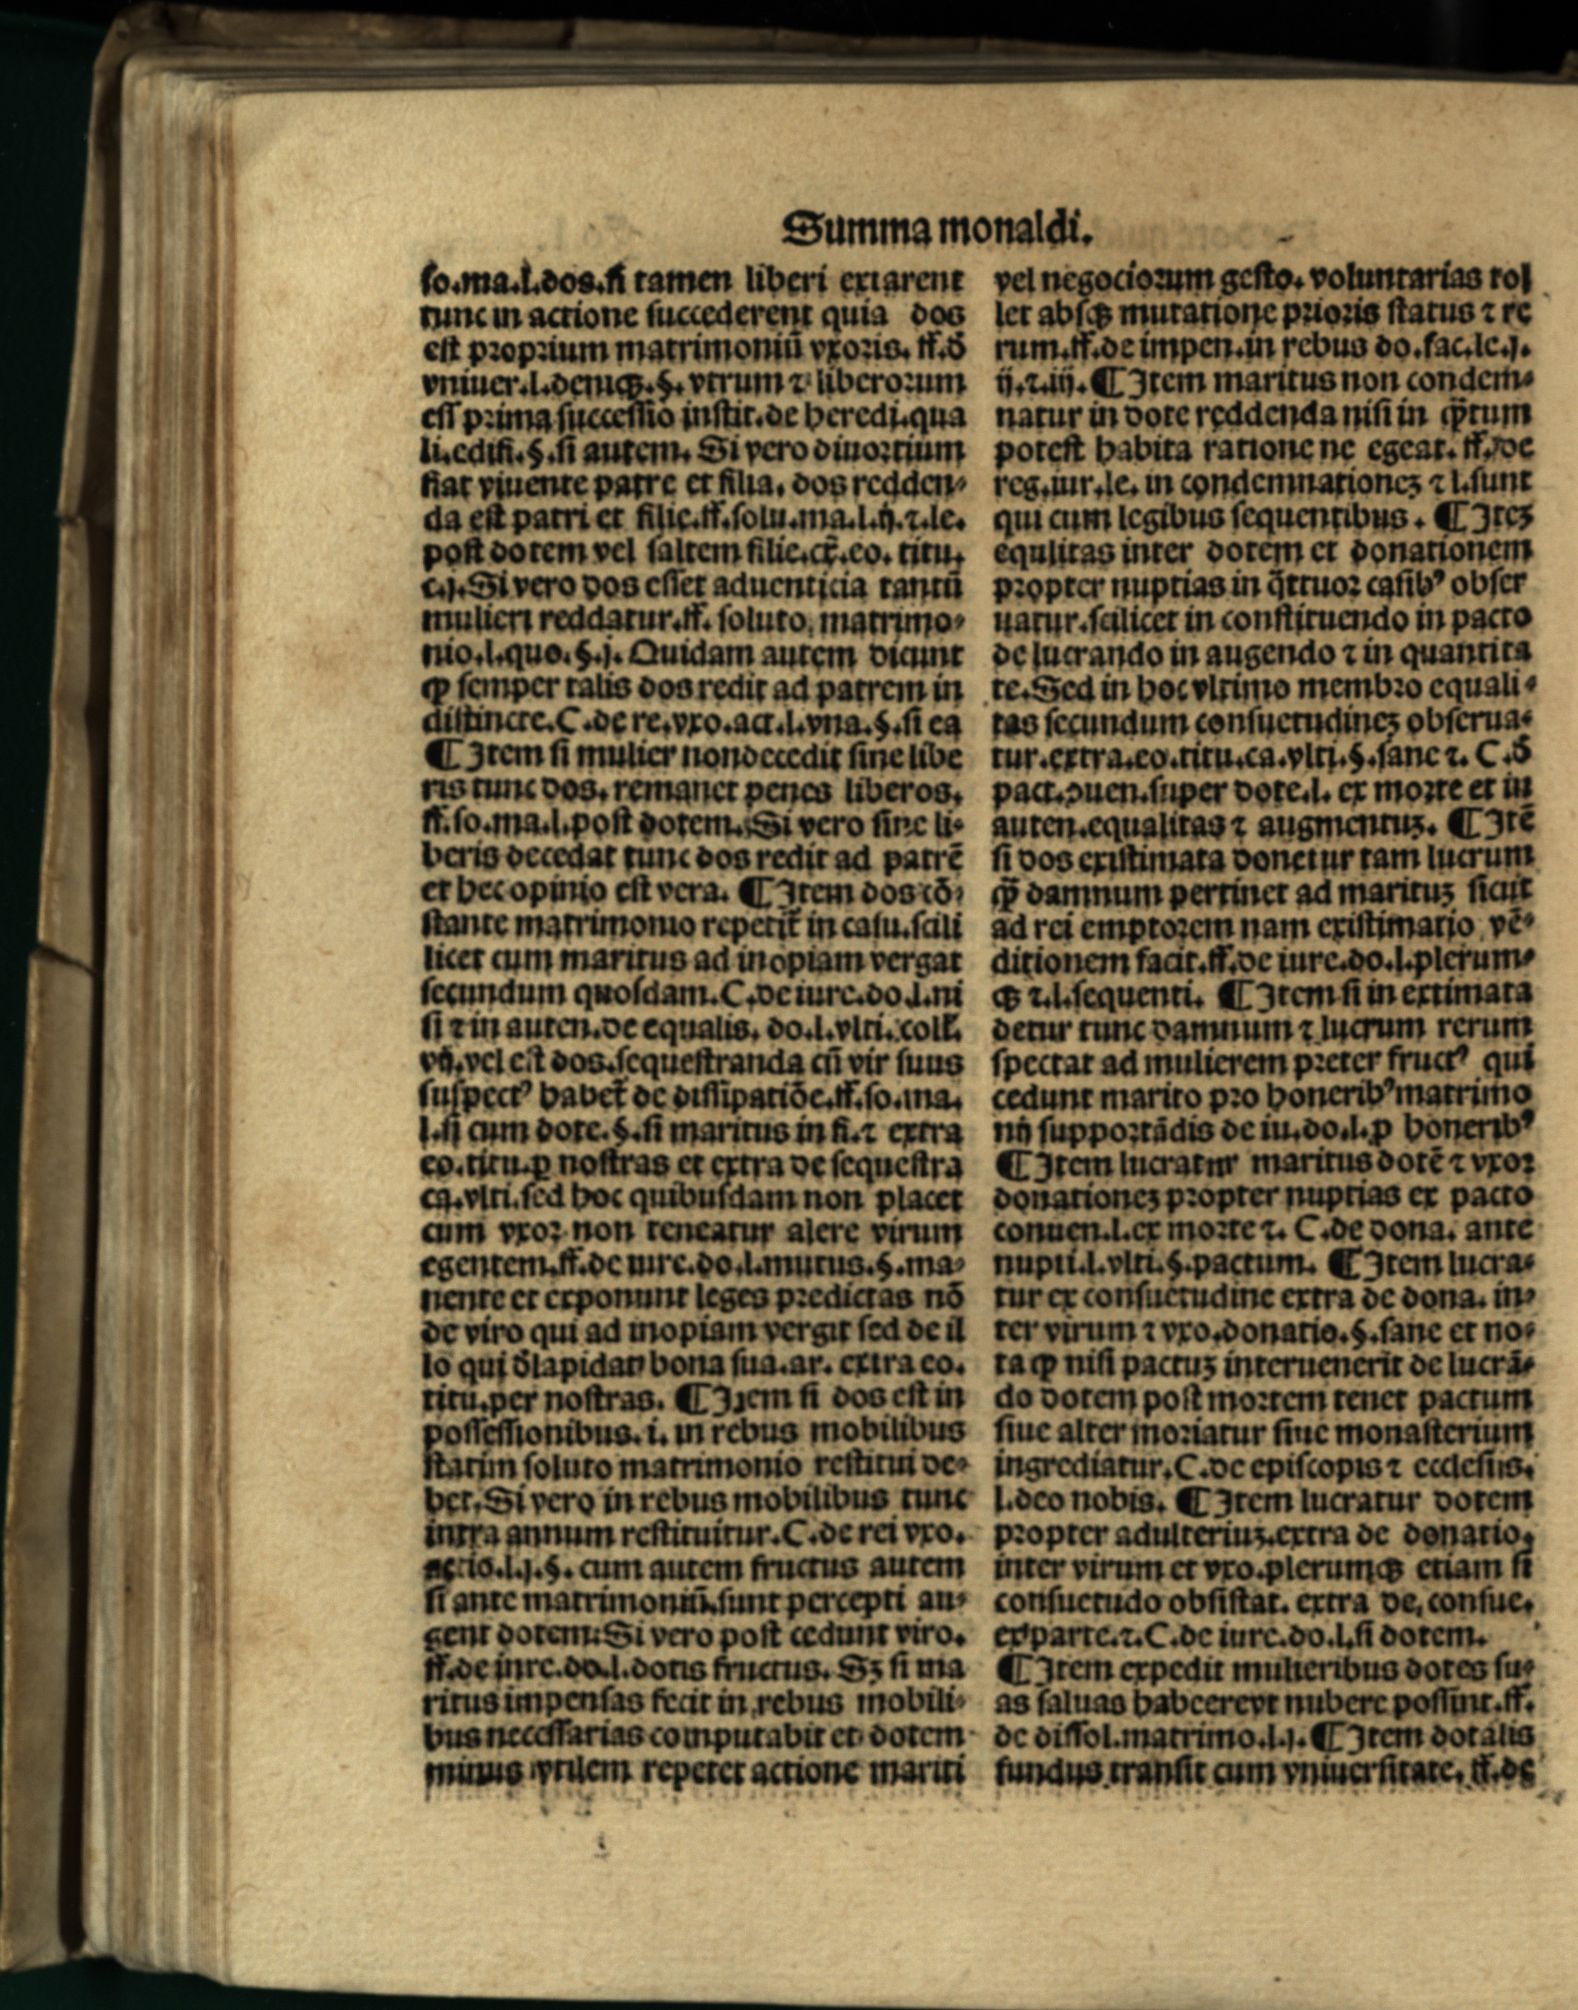 Summa monaldi.
so.ma.l.dos.si tamen liberi extarent
tunc in actione succederent quia dos
est proprium matrimoniū vxoris. ff.ō
vniuer.l.deniqꝫ.§.vtrum ⁊ liberorum
ess prima successio instit.de heredi.qua
li.edifi.§.si autem. Si vero diuortium
fiat viuente patre et filia. dos redden⸗
da est patri et filie.ff.solu.ma.l.ij.⁊.le.
post dotem vel saltem filie.cꝛ̄.eo. titu.
c.j.Si vero dos esset aduenticia tantū
mulieri reddatur.ff. soluto matrimo⸗
nio.l.quo.§.j. Quidam autem dicunt
ꝙ semper talis dos redit ad patrem in
distincte.C.de re.vxo.act.l.vna.§.si ea
¶ Item si mulier nondecedit sine libe
ris tunc dos. remanet penes liberos.
ff.so.ma.l.post dotem. Si vero sine li⸗
beris decedat tunc dos redit ad patrē
et hec opinio est vera. ¶ Item dos cō⸗
stante matrimonio repetit᷑ in casu.scili
licet cum maritus ad inopiam vergat
secundum quosdam.C.de iure.do.l.ni
si ⁊ in auten.de equalis. do.l.vlti.coll̄.
vij.vel est dos.sequestranda cū vir suus
suspectꝰ habet᷑ de dissipatiōe.ff.so.ma.
l.si cum dote.§.si maritus in fi.⁊ extra
eo.titu.ꝑ nostras et extra de sequestra
ca.vlti.sed hoc quibusdam non placet
cum vxor non teneatur alere virum
egentem.ff.de iure.do.l.mutus.§.ma⸗
nente et exponunt leges predictas nō
de viro qui ad inopiam vergit sed de il
lo qui ōlapidat᷑ bona sua.ar. extra eo.
titu.per nostras. ¶ Item si dos est in
possessionibus.i. in rebus mobilibus
statim soluto matrimonio restitui de⸗
bet.Si vero in rebus mobilibus tunc
intra annum restituitur.C.de rei vxo.
actio.l.j.§. cum autem fructus autem
si ante matrimoniū.sunt percepti au⸗
gent dotem.Si vero post cedunt viro.
ff.de iure.do.l.dotis fructus. Sꝫ si ma
ritus impensas fecit in rebus mobili⸗
bus necessarias computabit et dotem
minus vtilem repetet actione mariti
vel negociorum gesto. voluntarias tol
let absqꝫ mutatione prioris status ⁊ re
rum.ff.de impen.in rebus do.fac.le.j.
ij.⁊.iij. ¶ Item maritus non condem⸗
natur in dote reddenda nisi in qꝫ̄tum
potest habita ratione ne egeat. ff. de
reg.iur.le. in condemnationeꝫ ⁊ l.sunt
qui cum legibus sequentibus. ¶ Iteꝫ
equlitas inter dotem et donationem
propter nuptias in q̄ttuor casibꝰ obser
uatur.scilicet in constituendo in pacto
de lucrando in augendo ⁊ in quantita
te.Sed in hoc vltimo membro equali⸗
tas secundum consuetudineꝫ obserua⸗
tur.extra.eo.titu.ca.vlti.§.sane ⁊. C.ō
pact.ↄuen.super dote.l. ex morte et in
auten.equalitas ⁊ augmentuꝫ. ¶ Itē
si dos existimata donetur tam lucrum
ꝙ̄ damnum pertinet ad marituꝫ sicut
ad rei emptorem nam existimatio vē⸗
ditionem facit.ff.de iure.do.l.plerum⸗
qꝫ ⁊.l.sequenti. ¶ Item si in extimata
detur tunc damnum ⁊ lucrum rerum
spectat ad mulierem preter fructꝰ qui
cedunt marito pro honeribꝰ matrimo
nij supportādis de iu.do.l.ꝓ honeribꝰ
¶ Item lucratur maritus dotē ⁊ vxor
donationeꝫ propter nuptias ex pacto
conuen.l.ex morte ⁊. C.de dona. ante
nupti.l.vlti.§.pactum. ¶ Item lucra⸗
tur ex consuetudine extra de dona. in⸗
ter virum ⁊ vxo.donatio.§.sane et no⸗
ta ꝙ nisi pactuꝫ interuenerit de lucrā⸗
do dotem post mortem tenet pactum
siue alter moriatur siue monasterium
ingrediatur.C.de episcopis ⁊ ecclesiis.
l.deo nobis. ¶ Item lucratur dotem
propter adulteriuꝫ.extra de donatio.
inter virum et vxo.plerumqꝫ etiam si
consuetudo obsistat. extra de. consue.
ex parte.⁊.C.de iure.do.l.si dotem.
¶ Item expedit mulieribus dotes su⸗
as saluas habeerevt nubere possint.ff.
de dissol.matrimo.l.j. ¶ Item dotalis
fundus transit cum vniuersitate. ff.de